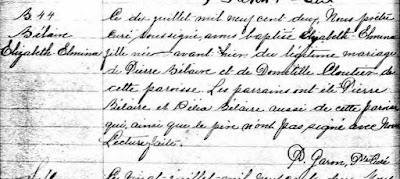 B 44
Bélaire
Elizabeth Elmina
Ce dix juillet mil neuf cent deux, Nous prêtre
Curé soussigné, avons baptisé Elizabeth Elmina
fille née avant hier du légitime mariage
de Pierre Bélaire et de Domitille Cloutier de
cette paroisse. Les parrains ont été Pierre
Bélaire et Bélaire aussi de cette paroisse
qui, ainsi que le père n'ont pas signé avec Nous
Lecture faite.
D. Garon, Ptre Curé